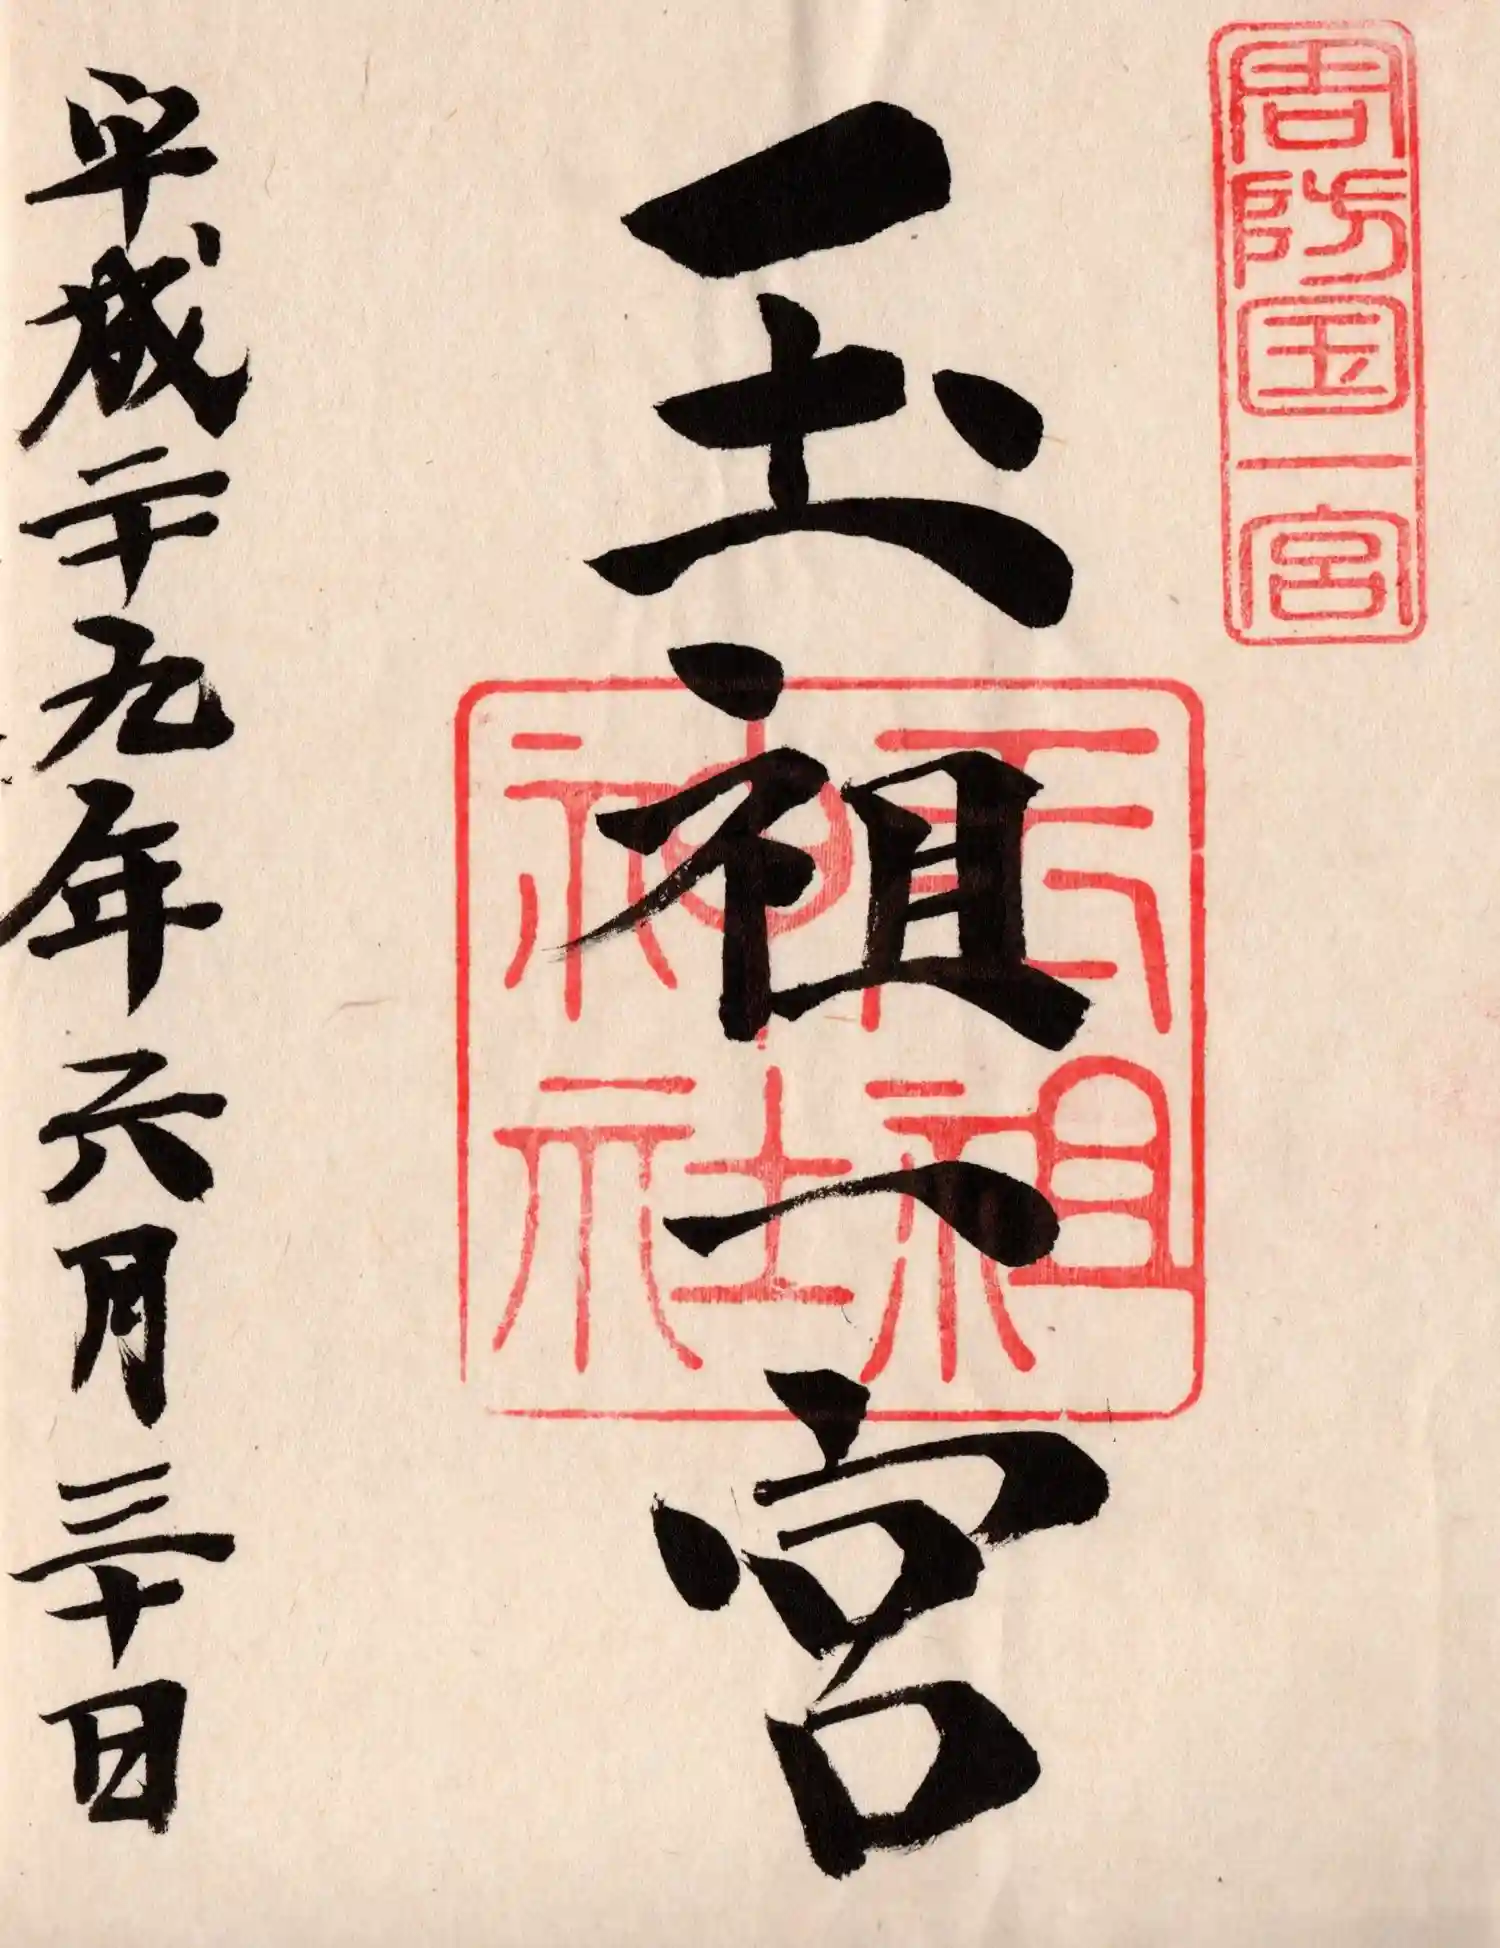 周防国一宮
玉祖一宮
玉祖
神社
平成二十九年六月三十日